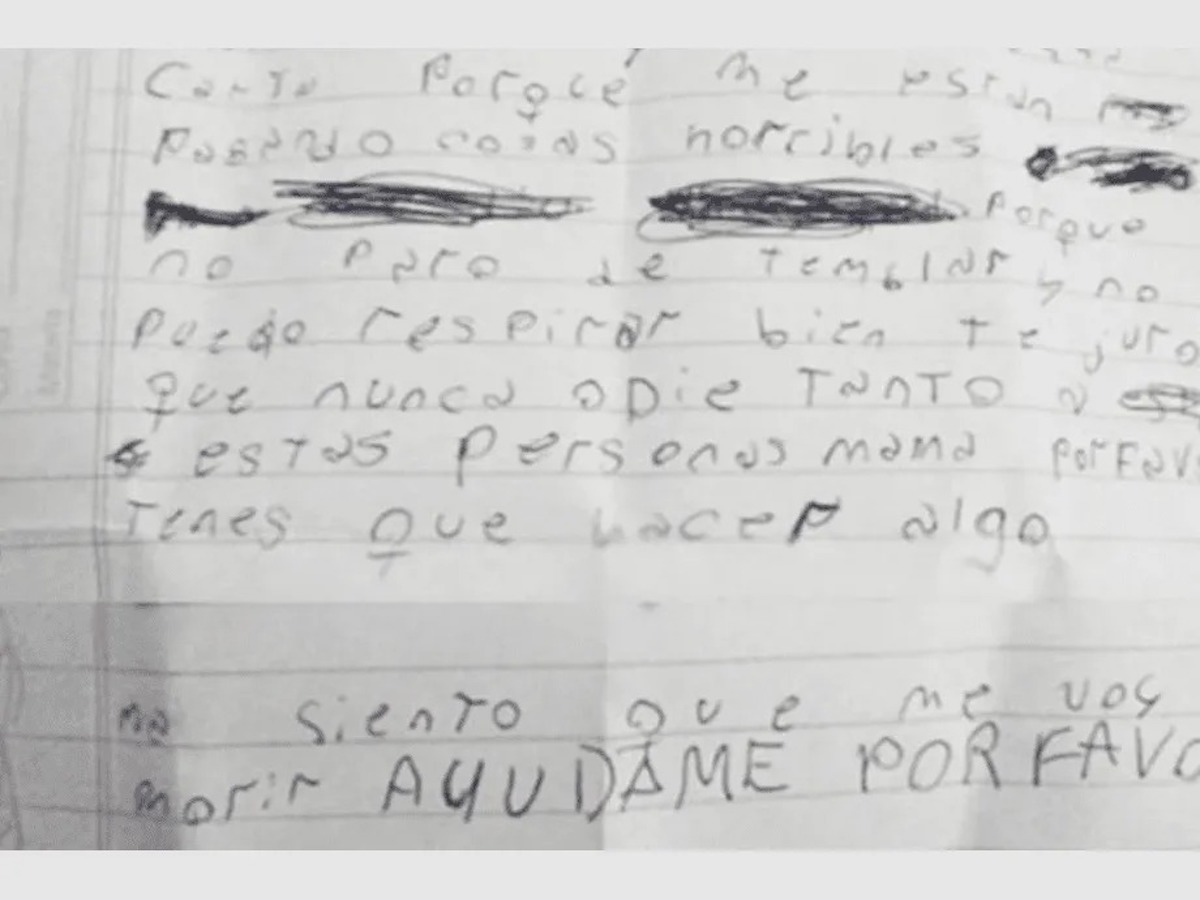 Carta Porqué me están
Pasando cosas horribles
Porque
no Paro de Temblar y no
Puedo respirar bien te juro
que nunca odie Tanto a
estas personas mama porfav
Tenes que hacer algo
siento que me voy
morir AYUDAME POR FAVO